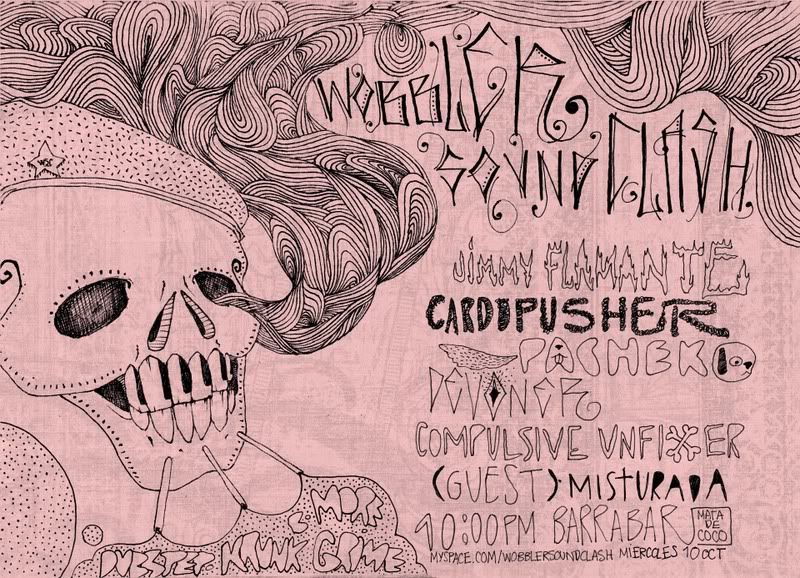 WOBBLER
SOUND CLASH
WSC
JIMMY FLAMANTE
CARDOPUSHER
PACHEKO
DEVONER
COMPULSIVE UNFIXER
(GUEST) MISTURADA
10:00PM BARRABAR MATA DE COCO
MYSPACE.COM/WOBBLERSOUNDCLASH MIERCOLES 10 OCT
DUBSTEP KRUNK GRIME
& MORE